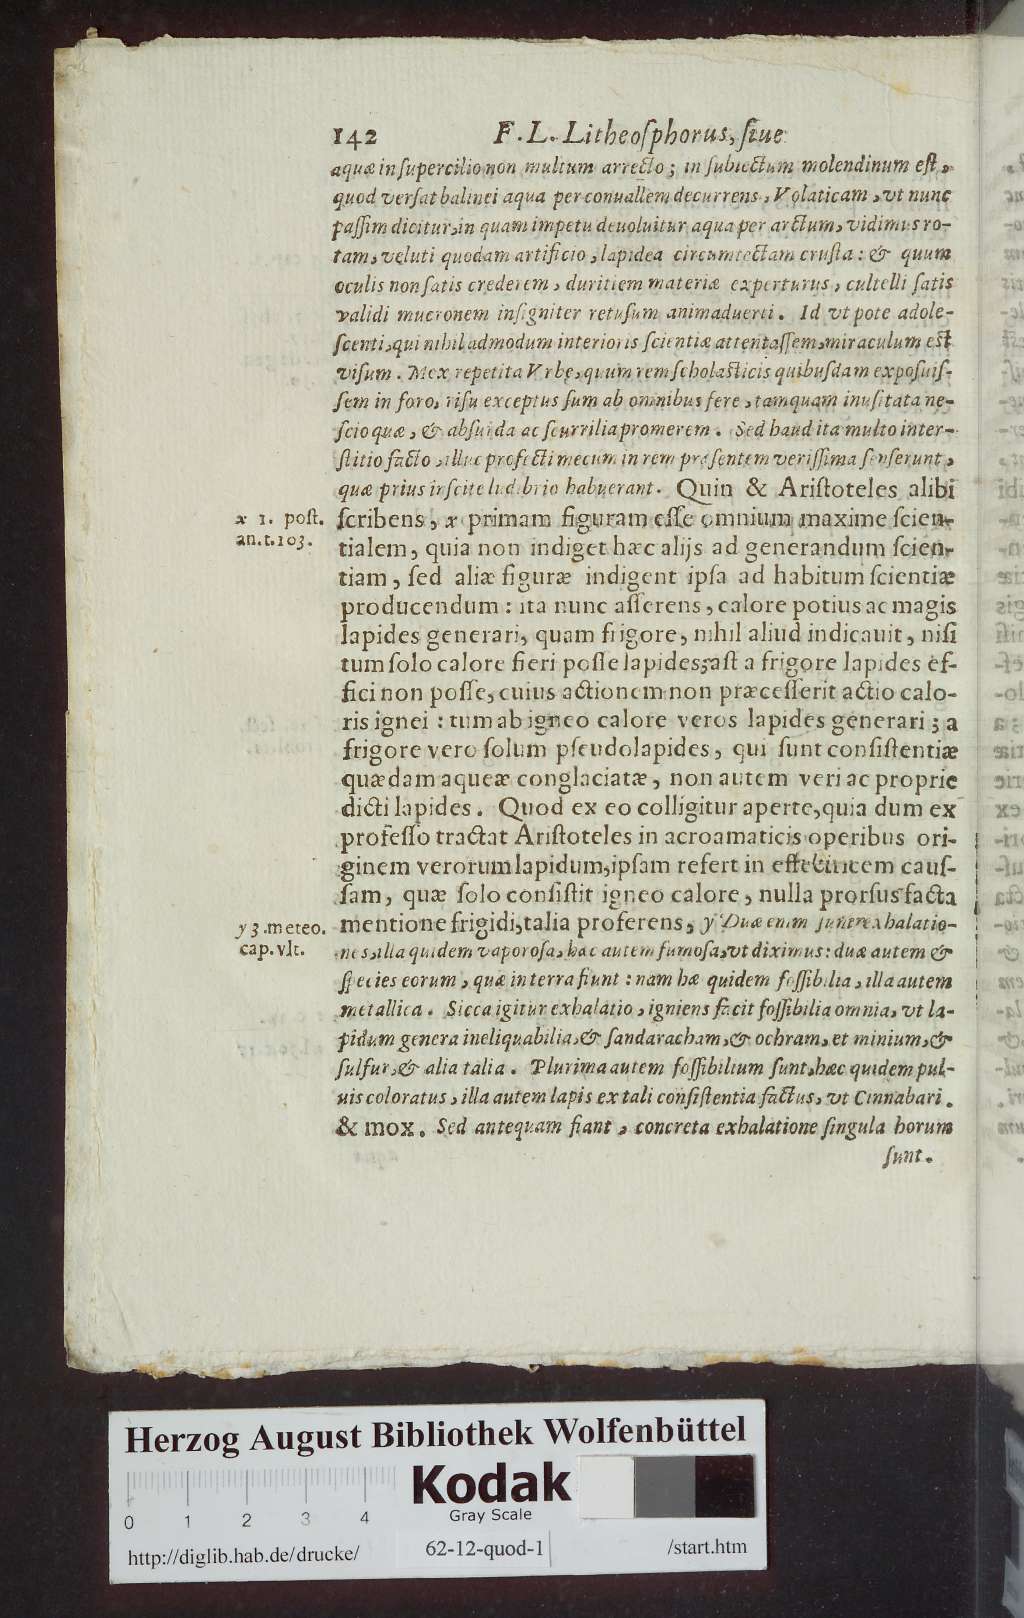 142 F. L. Litheoſphorus, ſiue
aquæ in ſupercilio non multum arrecto; in ſubiectum molendinum eſt,
quod verſat balinei aqua per conuallem decurrens, Volaticam, vt nunc
paſſim dicitur, in quam impetu deuoluitur aqua per arctum, vidimus ro-
tam, veluti quodam artificio, lapidea circumtectam cruſta: & quum
oculis non ſatis crederem, duritiem materiæ experturus, cultelli ſatis
validi mucronem inſigniter retuſum animaduerti. Id vt pote adole-
ſcenti, qui nihil admodum interioris ſcientiæ attentaſſem, miraculum eſt
viſum. Mox repetita Vrbe, quum rem ſcholaſticis quibuſdam expoſuiſ-
ſem in foro, riſu exceptus ſum ab omnibus fere, tamquam inuſitata ne-
ſcio quæ, & abſurda ac ſcurrilia promerem. Sed haud ita multo inter-
ſtitio facto, illuc profecti mecum in rem præſentem veriſſima ſenſerunt,
quæ prius inſcite ludibrio habuerant. Quin & Ariſtoteles alibi
x 1. poſt. ſcribens, x primam figuram eſſe omnium maxime ſcien-
an.t.103. tialem, quia non indiget hæc alijs ad generandum ſcien-
tiam, ſed aliæ figuræ indigent ipſa ad habitum ſcientiæ
producendum: ita nunc aſſerens, calore potius ac magis
lapides generari, quam frigore, nihil aliud indicauit, niſi
tum ſolo calore fieri poſſe lapides; aſt a frigore lapides ef-
fici non poſſe, cuius actionem non præceſſerit actio calo-
ris ignei: tum ab igneo calore veros lapides generari; a
frigore vero ſolum pſeudolapides, qui ſunt conſiſtentiæ
quædam aqueæ conglaciatæ, non autem veri ac proprie
dicti lapides. Quod ex eo colligitur aperte, quia dum ex
profeſſo tractat Ariſtoteles in acroamaticis operibus ori-
ginem verorum lapidum, ipſam refert in efficientem cauſ-
ſam, quæ ſolo conſiſtit igneo calore, nulla prorſus facta
y 3.meteo. mentione frigidi, talia proferens, y Duæ enim ſunt exhalatio-
cap.vlt. nes, illa quidem vaporoſa, hæc autem fumoſa, vt diximus: duæ autem &
ſpecies eorum, quæ in terra fiunt: nam hæ quidem foſſibilia, illa autem
metallica. Sicca igitur exhalatio, igniens facit foſſibilia omnia, vt la-
pidum genera ineliquabilia, & ſandaracham, & ochram, et minium, &
ſulfur, & alia talia. Plurima autem foſſibilium ſunt, hæc quidem pul-
uis coloratus, illa autem lapis ex tali conſiſtentia factus, vt Cinnabari.
& mox. Sed antequam fiant, concreta exhalatione ſingula horum
ſunt.
Herzog August Bibliothek Wolfenbüttel
Kodak
Gray Scale
0 1 2 3 4
http://diglib.hab.de/drucke/ 62-12-quod-1 /start.htm